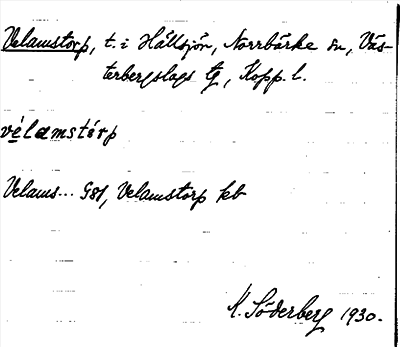 Velamstorp, t. i Hällsjön, Norrbärke sn, Väs-
terbergslags tg, Kopp. l.
vélamstórp
Velams... G81, Velamstorp kb
K. Söderberg 1930.